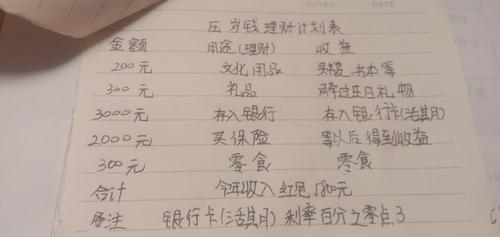 NOTES DATE
压岁钱理财计划表
金额 用途(理财) 收益
200元 文化用品 书本等
300元 礼品 过生日礼物
3000元 存入银行 存入银行卡(活期)
2000元 买保险 等以后得到收益
300元 零食 零食
合计 今年收入红包5800元
备注 银行卡(活期)利率百分之零点3